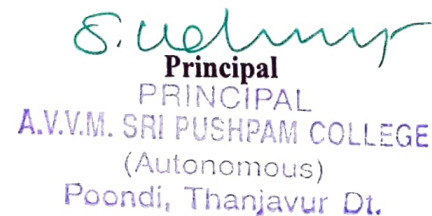 Principal
PRINCIPAL
A.V.V.M. SRI PUSHPAM COLLEGE
(Autonomous)
Poondi, Thanjavur Dt.